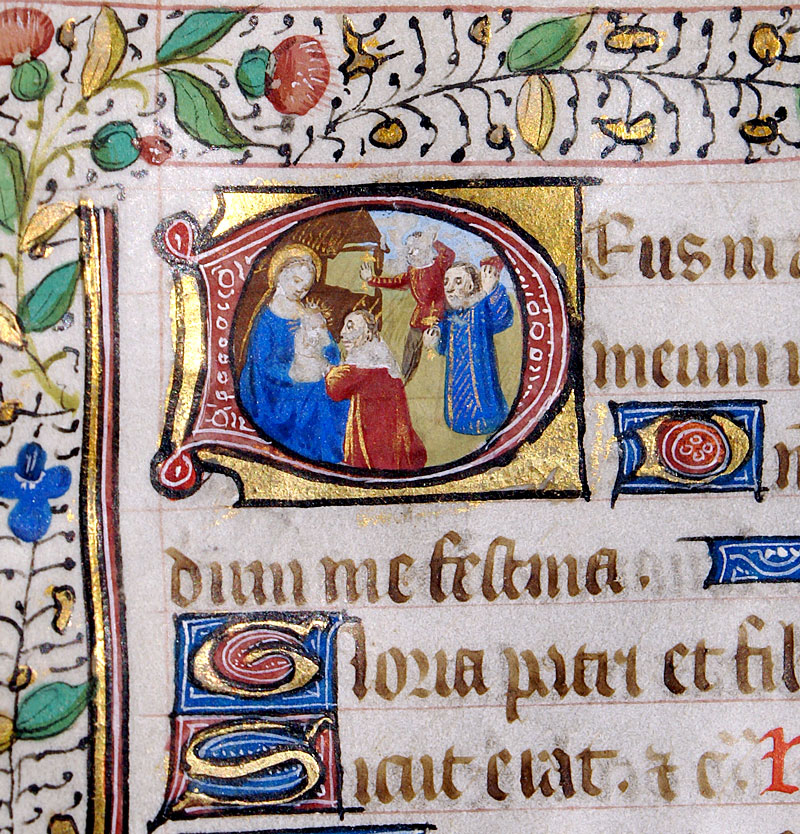 Deus in a
meum i
D
dium me festina.
Gloria patri et fil
Sicut erat. &c.